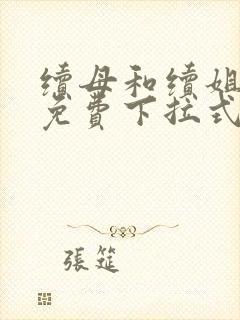 續母和續姐
免費下拉式
張筵